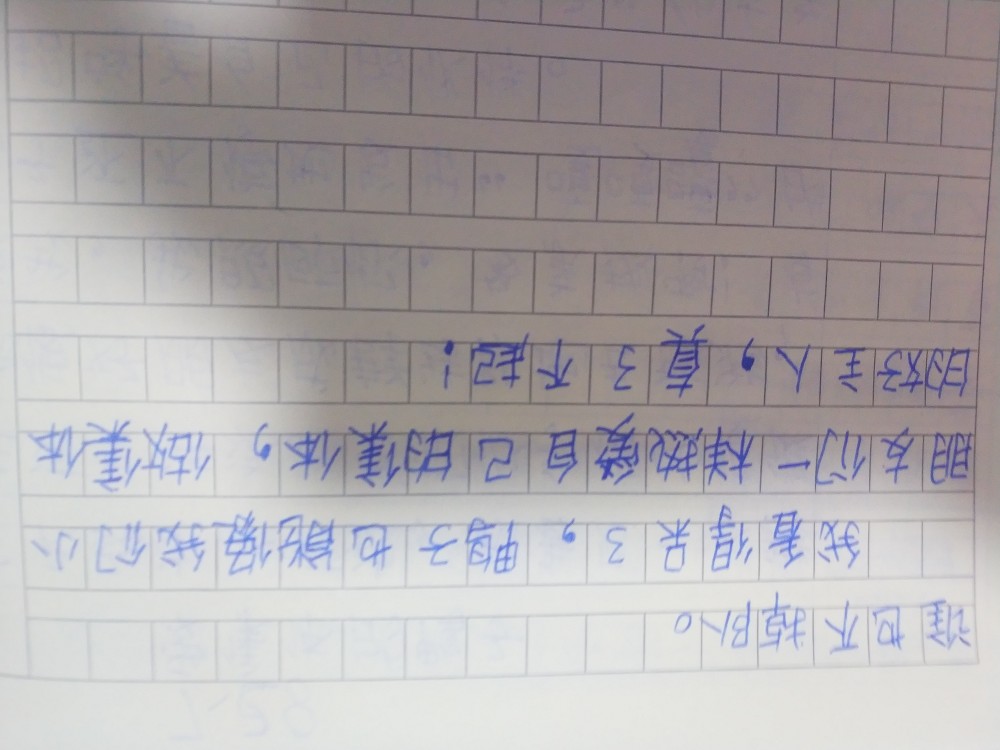 谁也不掉队。
我看得呆了，鸭子也能像我们小
朋友们一样热爱自己的集体，做集体
的好主人，真了不起！